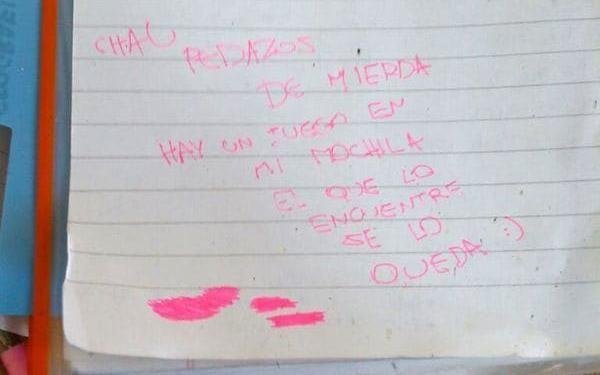 CHAU PEDAZOS
DE MIERDA
HAY UN JUEGO EN
MI MOCHILA
EL QUE LO
ENCUENTRE
SE LO
QUEDA :)